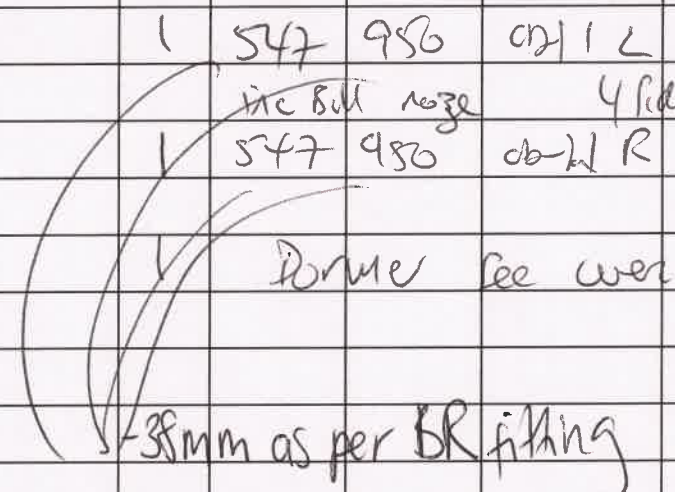 1 547 950 L
inc Bull noze 4
1 547 950 R
1 Dormer see over
-38mm as per BR fitting